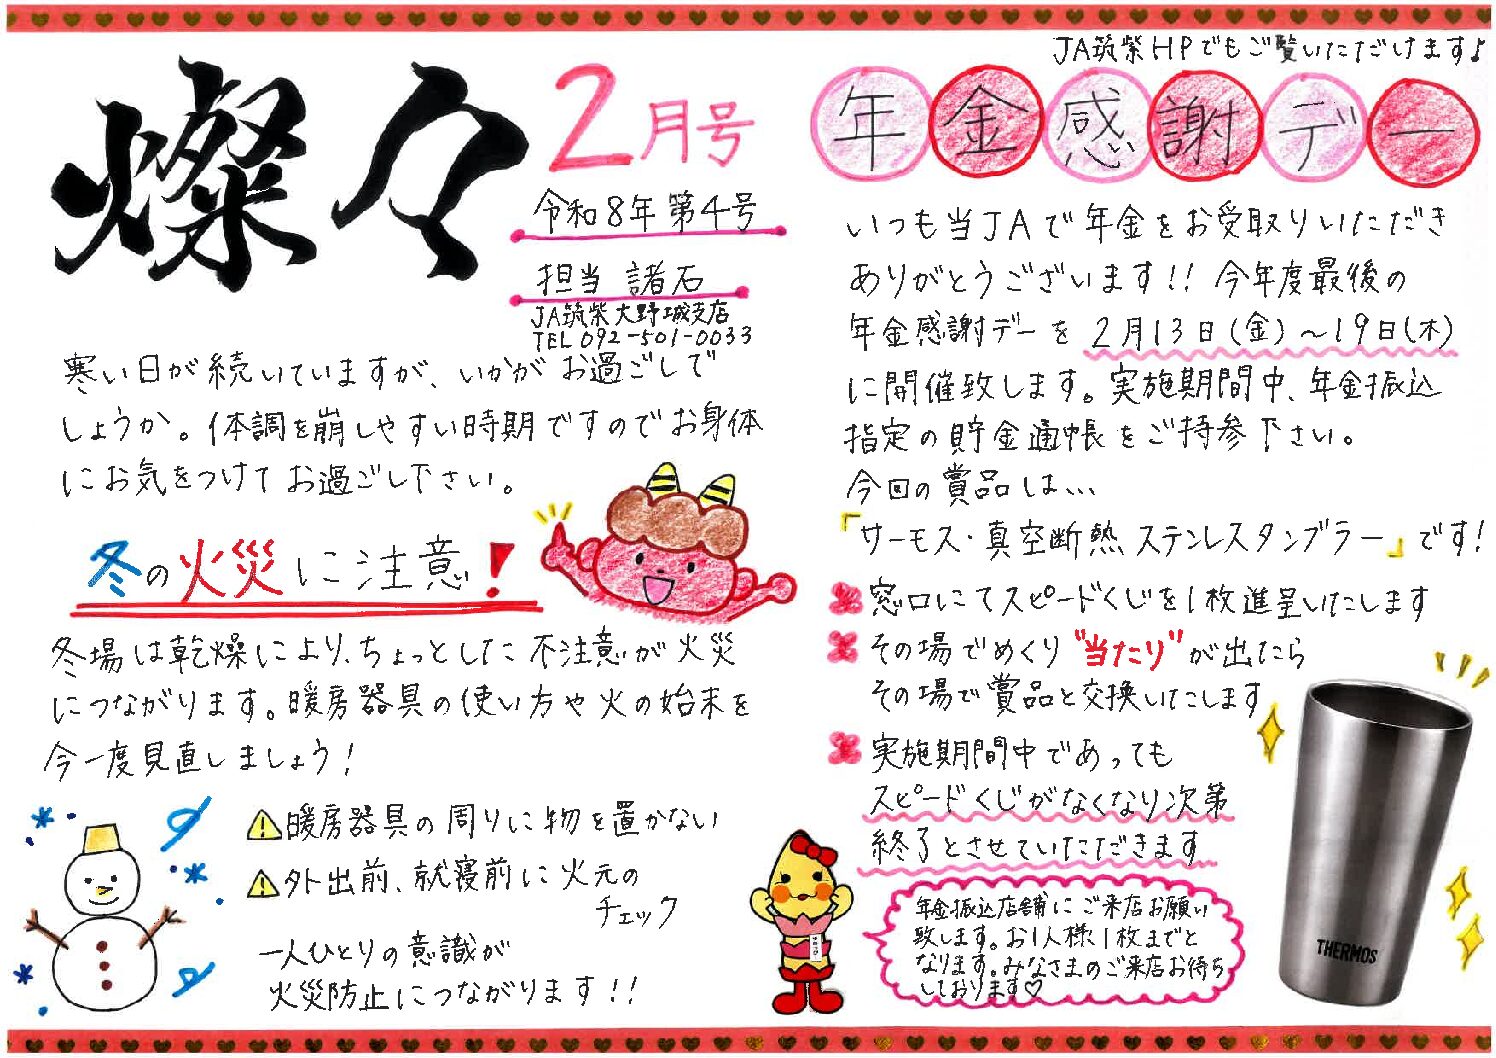 燦々
2月号
令和8年 第4号
担当 諸石
JA筑紫大野城支店
TEL 092-501-0033
寒い日が続いていますが、いかがお過ごしで
しょうか。体調を崩しやすい時期ですのでお身体
にお気をつけてお過ごし下さい。
冬の火災に注意!
冬場は乾燥により、ちょっとした不注意が火災
につながります。暖房器具の使い方や火の始末を
今一度見直しましょう!
暖房器具の周りに物を置かない
外出前、就寝前に火元の
チェック
一人ひとりの意識が
火災防止につながります!!
JA筑紫HPでもご覧いただけます♪
年金感謝デー
いつも当JAで年金をお受取りいただき
ありがとうございます!! 今年度最後の
年金感謝デーを2月13日(金)~19日(木)
に開催致します。実施期間中、年金振込
指定の貯金通帳をご持参下さい。
今回の賞品は…
「サーモス・真空断熱ステンレスタンブラー」です!
窓口にてスピードくじを1枚進呈いたします
その場でめくり"当たり"が出たら
その場で賞品と交換いたします
実施期間中であっても
スピードくじがなくなり次第
終了とさせていただきます
年金振込店舗にご来店お願い
致します。お1人様1枚までと
なります。みなさまのご来店お待ち
しております♡
THERMOS